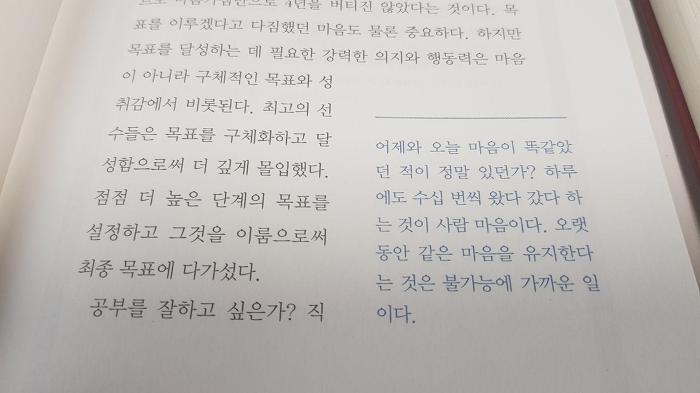 마음가짐만으로 4년을 버티진 않았다는 것이다. 목
표를 이루겠다고 다짐했던 마음도 물론 중요하다. 하지만
목표를 달성하는 데 필요한 강력한 의지와 행동력은 마음
이 아니라 구체적인 목표와 성
취감에서 비롯된다. 최고의 선
수들은 목표를 구체화하고 달
성함으로써 더 깊게 몰입했다.
점점 더 높은 단계의 목표를
설정하고 그것을 이룸으로써
최종 목표에 다가섰다.
공부를 잘하고 싶은가? 직
어제와 오늘 마음이 똑같았
던 적이 정말 있던가? 하루
에도 수십 번씩 왔다 갔다 하
는 것이 사람 마음이다. 오랫
동안 같은 마음을 유지한다
는 것은 불가능에 가까운 일
이다.